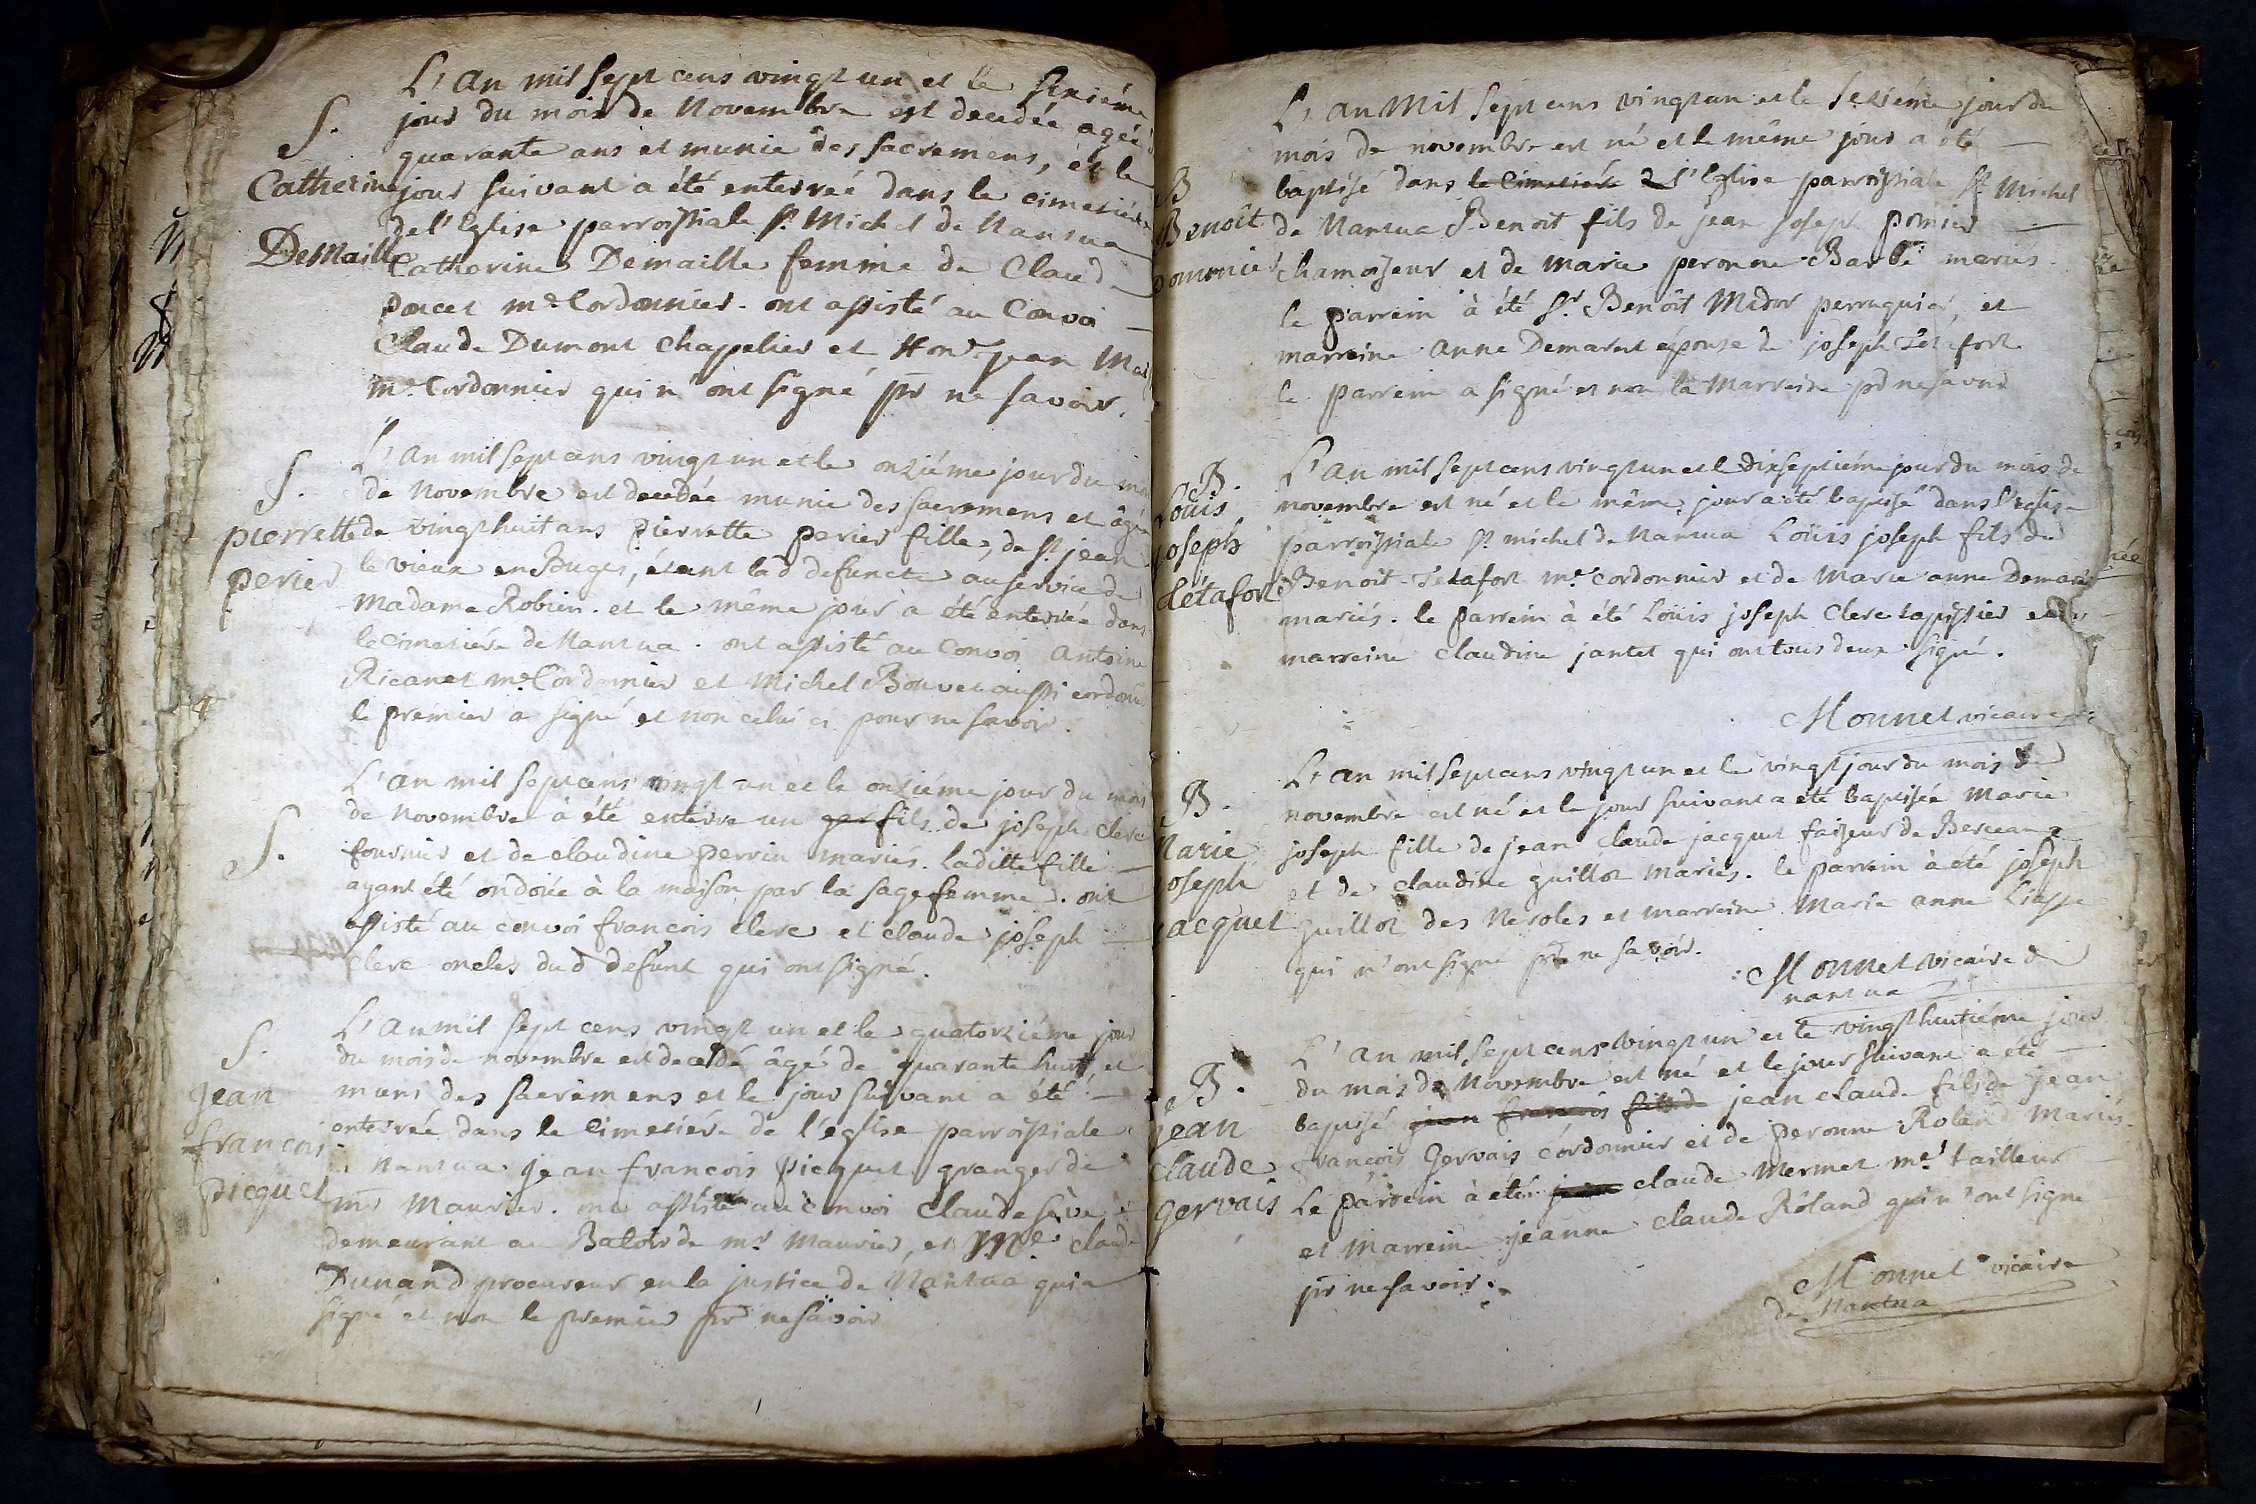 L'an mil sept cens vingt un et le sixiéme
jour du mois de Novembre est decedée agée
quarante ans et munie des sacremens, et le
jour suivant a été enterreé dans le cimetiére
de l'Eglise parroissiale st. Michel de Nantua
Catherine Demaille femme de Claude
poncet me. Cordonnier. ont assisté au Convoi
Claude Dumont chapelier et Honr. jean
me. Cordonnier qui n'ont signé pr ne savoir.
S.
Catherine
DeMaille
L'an mil sept cens vingt un et le onziéme jour du mois
de Novembre est decedée munie des sacremens et âgée
de vingt huit ans pierrette perier fille, de st. jean
le vieux en Bugei, étant lad defuncte au service de
Madame Robin. et le même jour a été enterrée dans
le Cimetiére de Nantua. ont assisté au Convoi Antoine
Ricanet me. Cordonnier et Michel Bouvet aussi cordonnier
le premier a signé et non celui ci pour ne savoir.
S.
pierrette
perier
L'an mil sept cens vingt un et le onziéme jour du mois
de Novembre à été enterre un fils de joseph clerc
fournier et de claudine perrin mariés. la ditte fille
ayant été ondoiée à la maison par la sage femme. ont
assisté au convoi francois clerc et claude joseph
clerc oncles du d defunt qui ont signé.
S.
L'an mil sept cens vingt un et le quatorziéme jour
du mois de novembre est decedé âgé de quarante huit, et
muni des sacremens et le jour suivant a été
enterrée dans le Cimetiére de l'église parroissiale
Nantua jean francois picquet granger de
mr Maurier. ont assisté au convoi Claude sève
demeurant au Baloir de mr Maurier, et Me. claude
Dunand procureur en la justice de Nantua qui a
signé et non le premier pr ne savoir
S.
jean
francois
picquet
L'an Mil sept cens vingt un et le seziéme jour du
mois de novembre est né et le même jour a été
baptisé dans le Cimetiére de l'Eglise parroissiale st Michel
de Nantua Benoit fils de jean joseph pomier
chamoiseur et de marie peronne Barbé mariés.
le parrein à été sr. Benoît Midor perruquié, et
marreine Anne Demarest épouse de joseph Létafort
le parrein a signé et non la Marreine pr ne savoir
B
Benoît
pommier
L'an mil sept cens vingt un et le dixseptiéme jour du mois de
novembre est né et le même jour a été baptisé dans l'eglise
parroissiale st michel de Nantua Loüis joseph fils de
Benoît Letafort me. cordonnier et de Marie anne Demarest
mariés. le parrein à été Loüis joseph Clerc tapissier et
marreine claudine jantet qui ont tous deux signé.
Monnet vicaire
B.
Loüis
joseph
Letafort
L'an mil sept cens vingt un et le vingt jour du mois de
novembre est né et le jour suivant a été baptisée Marie
joseph fille de jean claude jacquet faizeur de Berceaux
et de claudine guillot mariés. le parrein à été joseph
guillot des Neroles et marreine Marie anne
qui n'ont signé pr ne savoir.
Monnet vicaire de
nantua
B.
Marie
joseph
jacquet
L'an mil sept cens vingt un et le vingt huitiéme jour
du mois de Novembre est né et le jour suivant a été
baptisé jean francois fils de jean claude fils de jean
françois Gervais cordonnier et de peronne Roland Mariés.
Le parrein à été claude Mermet me. tailleur
et Marreine jeanne claude Rôland qui n'ont signé
pr ne savoir.
Monnet vicaire
de Nantua
B.
jean
Claude
Gervais